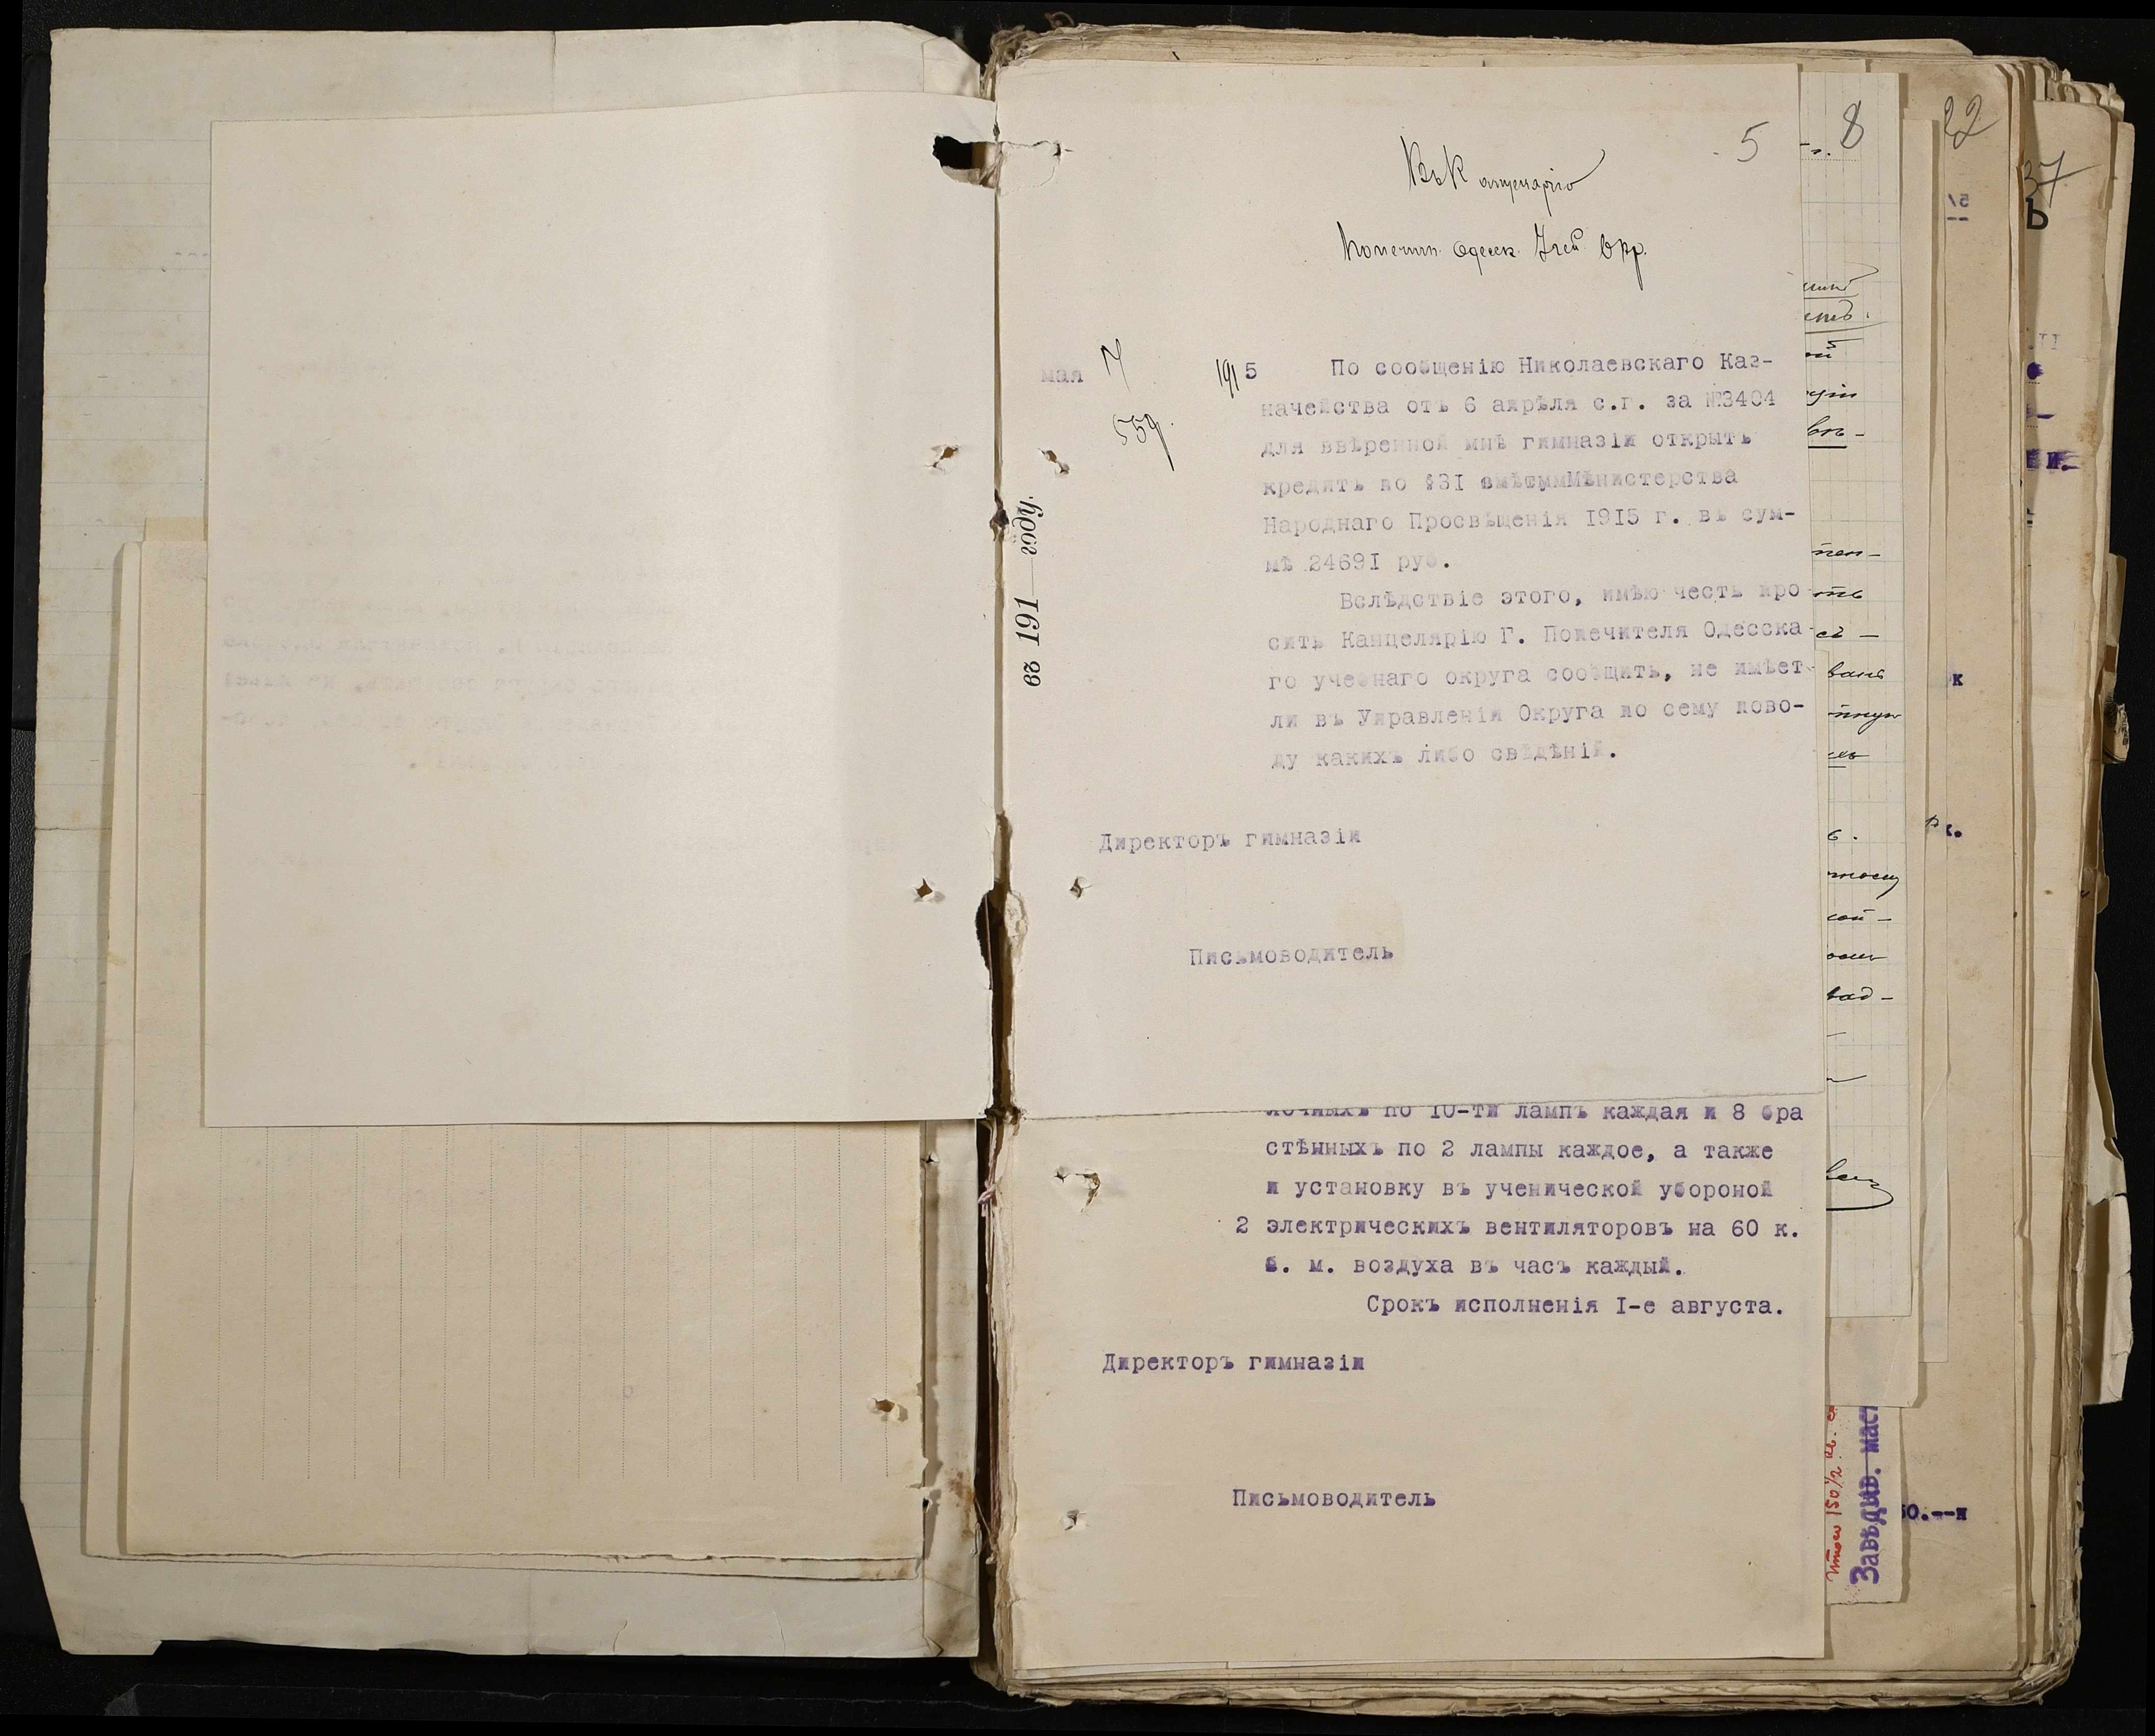 5
Въ Канцелярію
Попечит. Одесск. Учеб. Окр.
мая 7 1915
559
По сообщенію Николаевскаго Каз-
начейства отъ 6 апрѣля с.г. за №3404
для ввѣренной мнѣ гимназіи открытъ
кредитъ по §31 смѣты Министерства
Народнаго Просвѣщенія 1915 г. въ сум-
мѣ 24691 руб.
Вслѣдствіе этого, имѣю честь про
сить Канцелярію Г. Попечителя Одесска-
го учебнаго округа сообщить, не имѣет-
ли въ Управленіи Округа по сему пово-
ду какихъ либо свѣдѣній.
Директоръ гимназіи
Письмоводитель
въ 191 году.
лочныхъ по 10-ти лампъ каждая и 8 бра
стѣнныхъ по 2 лампы каждое, а также
и установку въ ученической убороной
2 электрическихъ вентиляторовъ на 60 к.
б. м. воздуха въ часъ каждый.
Срокъ исполненія I-е августа.
Директоръ гимназіи
Письмоводитель
8
22
37
Завѣдыв. маст